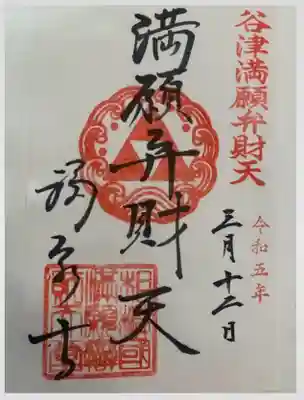 谷津満願弁財天
令和五年
三月十二日
満願弁財天